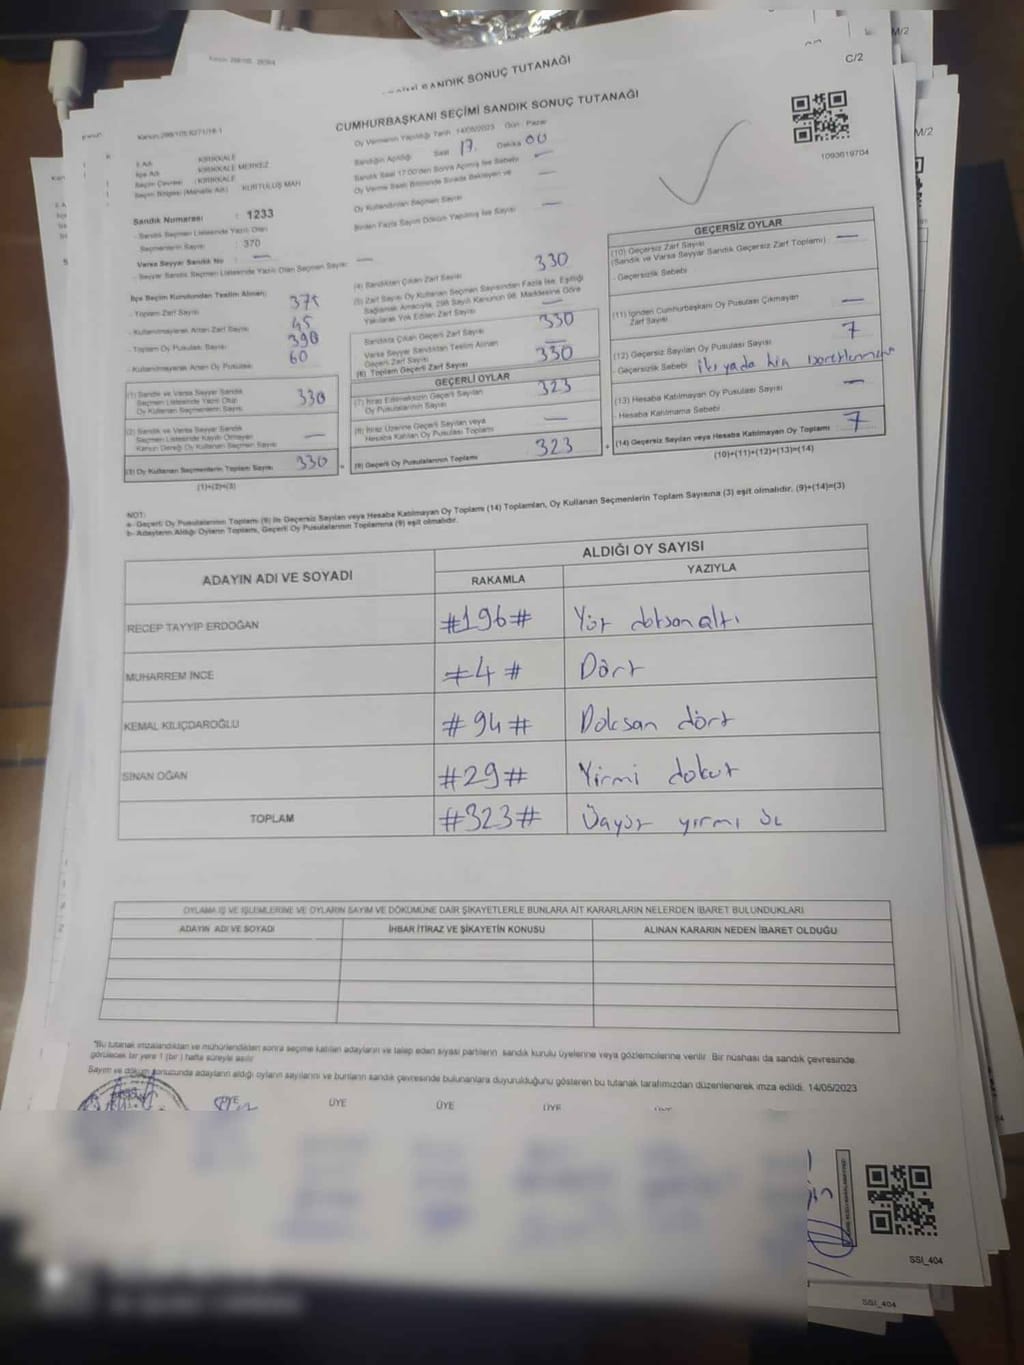 CUMHURBAŞKANI SEÇİMİ SANDIK SONUÇ TUTANAĞI
C/2
Oy Vermenin Yapıldığı Tarih 14/05/2023 Gün : Pazar
Sandığın Açıldığı Saat 17. Dakika 00
Sandık Saat 17:00'den Sonra Açılmış İse Sebebi —
Oy Verme Saati Bitiminde Sırada Bekleyen ve
Oy Kullandırılan Seçmen Sayısı —
Birden Fazla Sayım Döküm Yapılmış İse Sayısı —
1093619704
İl Adı KIRIKKALE
İlçe Adı KIRIKKALE MERKEZ
Seçim Çevresi : KIRIKKALE
Seçim Bölgesi (Mahalle Adı) KURTULUŞ MAH
Sandık Numarası : 1233
- Sandık Seçmen Listesinde Yazılı Olan
Seçmenlerin Sayısı : 370
Varsa Seyyar Sandık No : —
- Seyyar Sandık Seçmen Listesinde Yazılı Olan Seçmen Sayısı —
İlçe Seçim Kurulundan Teslim Alınan:
- Toplam Zarf Sayısı 375
- Kullanılmayarak Artan Zarf Sayısı 45
- Toplam Oy Pusulası Sayısı 390
- Kullanılmayarak Artan Oy Pusulası 60
(1) Sandık ve Varsa Seyyar Sandık
Seçmen Listesinde Yazılı Olup
Oy Kullanan Seçmenlerin Sayısı 330
(2) Sandık ve Varsa Seyyar Sandık
Seçmen Listesinde Kayıtlı Olmayan
Kanun Gereği Oy Kullanan Seçmen Sayısı —
(3) Oy Kullanan Seçmenlerin Toplam Sayısı 330
(1)+(2)=(3)
(4) Sandıktan Çıkan Zarf Sayısı 330
(5) Zarf Sayısı Oy Kullanan Seçmen Sayısından Fazla İse, Eşitliği
Sağlamak Amacıyla, 298 Sayılı Kanunun 98. Maddesine Göre
Yakılarak Yok Edilen Zarf Sayısı —
Sandıkta Çıkan Geçerli Zarf Sayısı 330
Varsa Seyyar Sandıktan Teslim Alınan
Geçerli Zarf Sayısı —
(6) Toplam Geçerli Zarf Sayısı 330
GEÇERLİ OYLAR
(7) İtiraz Edilmeksizin Geçerli Sayılan
Oy Pusulalarının Sayısı 323
(8) İtiraz Üzerine Geçerli Sayılan veya
Hesaba Katılan Oy Pusulası Toplamı —
(9) Geçerli Oy Pusulalarının Toplamı 323
GEÇERSİZ OYLAR
(10) Geçersiz Zarf Sayısı —
(Sandık ve Varsa Seyyar Sandık Geçersiz Zarf Toplamı)
- Geçersizlik Sebebi
(11) İçinden Cumhurbaşkanı Oy Pusulası Çıkmayan
Zarf Sayısı —
(12) Geçersiz Sayılan Oy Pusulası Sayısı 7
- Geçersizlik Sebebi İki yada
(13) Hesaba Katılmayan Oy Pusulası Sayısı —
- Hesaba Katılmama Sebebi
(14) Geçersiz Sayılan veya Hesaba Katılmayan Oy Toplamı 7
(10)+(11)+(12)+(13)=(14)
NOT:
a- Geçerli Oy Pusulalarının Toplamı (9) ile Geçersiz Sayılan veya Hesaba Katılmayan Oy Toplamı (14) Toplamları, Oy Kullanan Seçmenlerin Toplam Sayısına (3) eşit olmalıdır. (9)+(14)=(3)
b- Adayların Aldığı Oyların Toplamı, Geçerli Oy Pusulalarının Toplamına (9) eşit olmalıdır.
ADAYIN ADI VE SOYADI
ALDIĞI OY SAYISI
RAKAMLA YAZIYLA
RECEP TAYYİP ERDOĞAN #196# Yüz doksan altı
MUHARREM İNCE #4# Dört
KEMAL KILIÇDAROĞLU #94# Doksan dört
SİNAN OĞAN #29# Yirmi dokuz
TOPLAM #323# Üçyüz yirmi üç
OYLAMA İŞ VE İŞLEMLERİNE VE OYLARIN SAYIM VE DÖKÜMÜNE DAİR ŞİKAYETLERLE BUNLARA AİT KARARLARIN NELERDEN İBARET BULUNDUKLARI
ADAYIN ADI VE SOYADI İHBAR İTİRAZ VE ŞİKAYETİN KONUSU ALINAN KARARIN NEDEN İBARET OLDUĞU
"Bu tutanak imzalandıktan ve mühürlendikten sonra seçime katılan adayların ve talep eden siyasi partilerin sandık kurulu üyelerine veya gözlemcilerine verilir. Bir nüshası da sandık çevresinde
görülecek bir yere 1 (bir) hafta süreyle asılır
Sayım ve döküm sonucunda adayların aldığı oyların sayılarını ve bunların sandık çevresinde bulunanlara duyurulduğunu gösteren bu tutanak tarafımızdan düzenlenerek imza edildi. 14/05/2023
ÜYE ÜYE ÜYE ÜYE
SSI_404
SSI_404